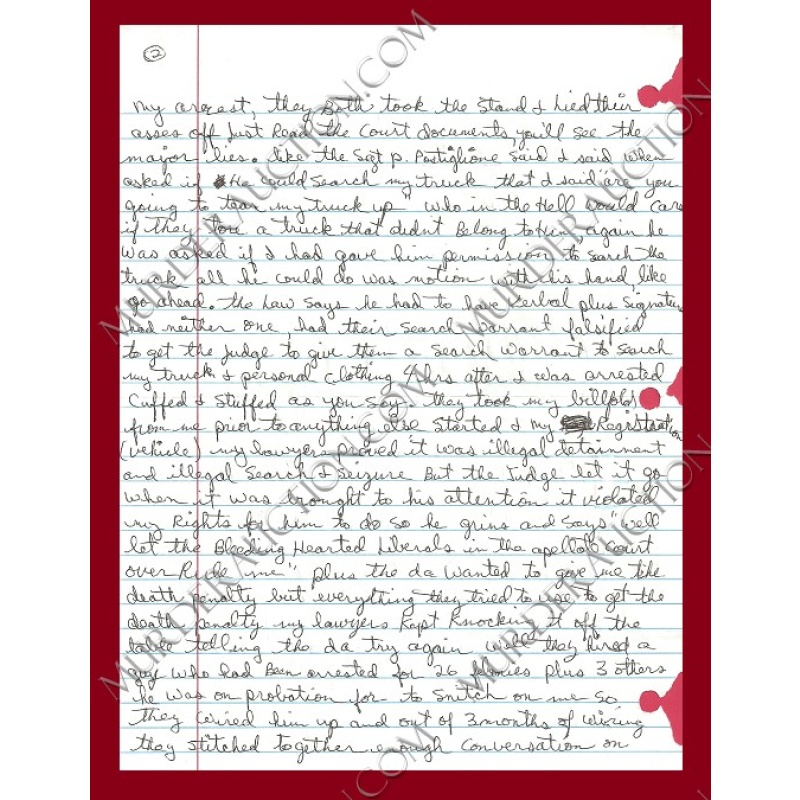 2
my arrest, they Both took the Stand & Lied their
asses off Just Read the Court documents, you'll see the
major lies. like the Sgt p. Postiglione said I said when
asked if He could Search my truck that I said are you
going to tear my truck up" who in the Hell would care
if they tore a truck that didn't Belong to Him again he
was asked if I had gave him permission to search the
truck all he could do was motion with his hand, like
go ahead. the Law Says he had to have verbal plus Signature
had neither one, had their Search Warrant falsified
to get the judge to give them a Search Warrant to Search
my truck & personal Clothing hrs after I was arrested
Cuffed & Stuffed as you Say, they took my billfold
from me prior to anything else Started & my Registration
(vehicle) my lawyers proved it was illegal detainment
and illegal Search & Seizure But the Judge let it go
when it was brought to his attention it violated
my Rights for him to do So he grins and Says "well
let the Bleeding Hearted Liberals in the apellate Court
over Ride me" plus the da wanted to give me the
death penalty but everything they tried to use to get the
death penalty my lawyers Kept Knocking it off the
table telling the da try again they hired a
guy who had Been arrested for 26 felonies plus 3 others
he was on probation for to Snitch on me So
they wired him up and out of 3 months of wiring
they Stitched together enough Conversation on
MURDERAUCTION.COM